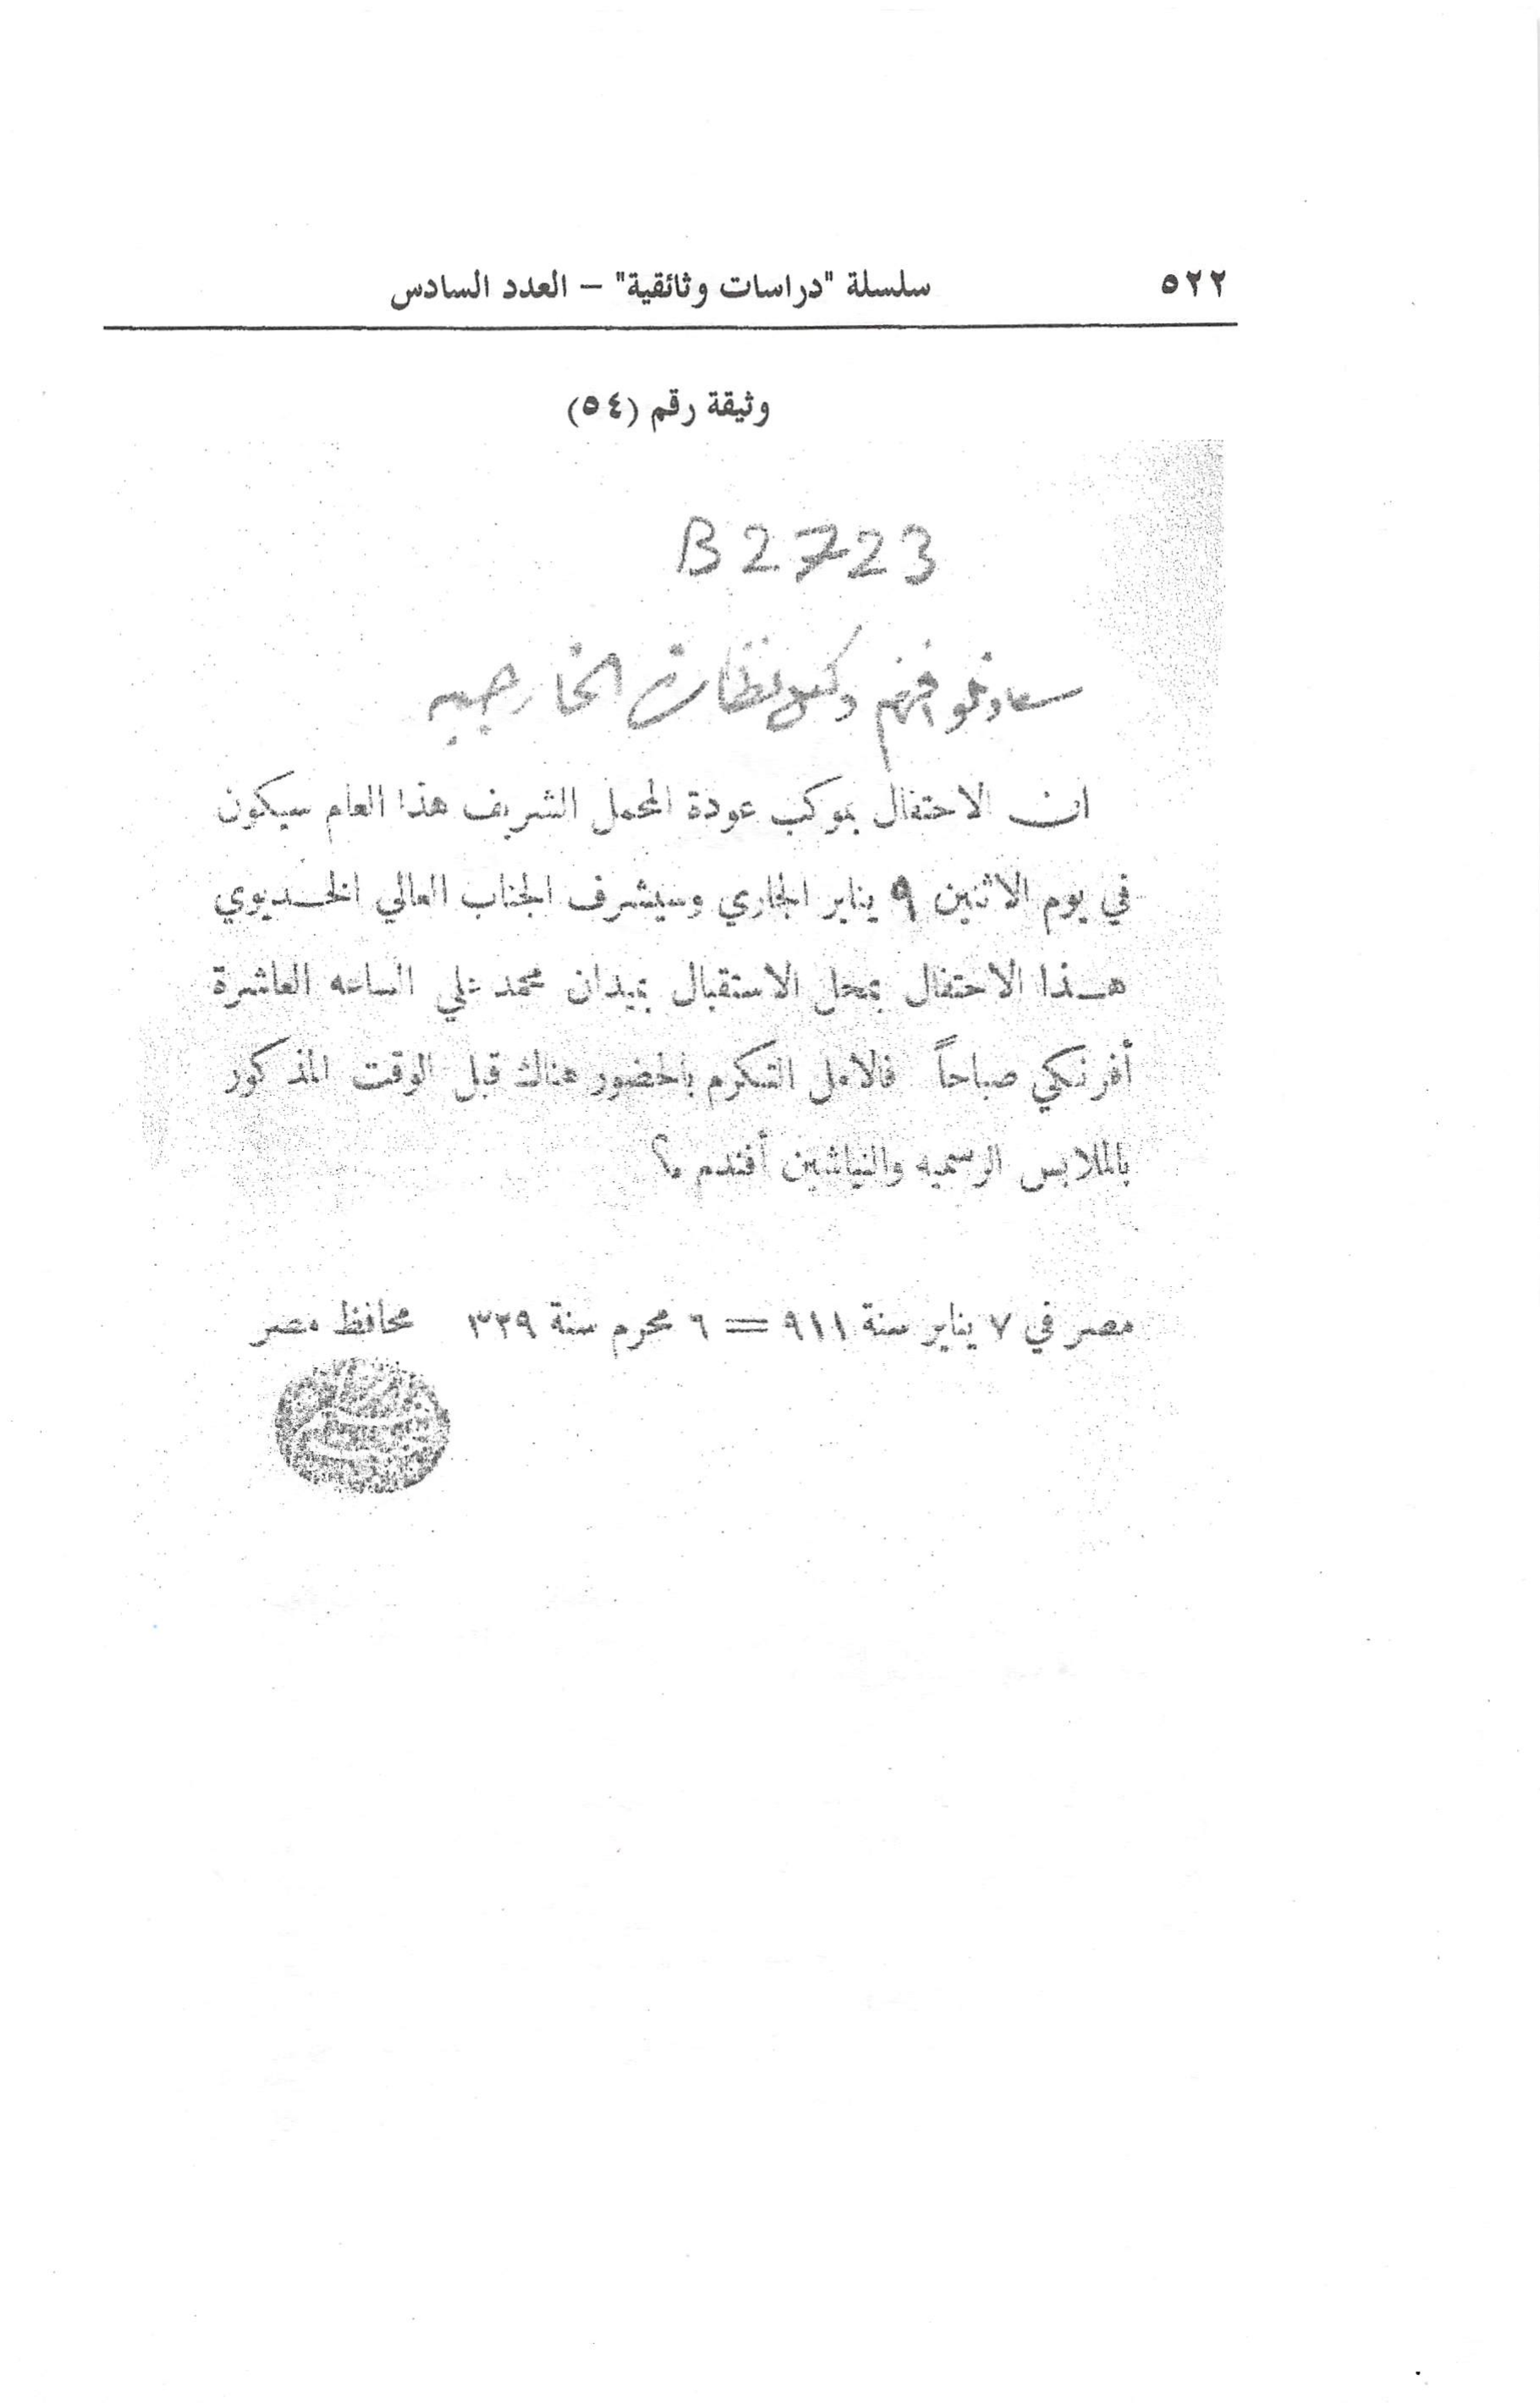 ٥٢٢ سلسلة "دراسات وثائقية" – العدد السادس
وثيقة رقم (٥٤)
B2723
سعادتلو افندم وكيل نظارة الخارجيه
ان الاحتفال بموكب عودة المحمل الشريف هذا العام سيكون
في يوم الاثنين ٩ يناير الجاري وسيشرف الجناب العالي الخديوي
هذا الاحتفال بمحل الاستقبال بميدان محمد علي الساعه العاشرة
أفرنكي صباحاً فالامل التكرم بالحضور هناك قبل الوقت المذكور
بالملابس الرسميه والنياشين أفندم
مصر في ٧ يناير سنة ٩١١ = ٦ محرم سنة ٣٢٩ محافظ مصر